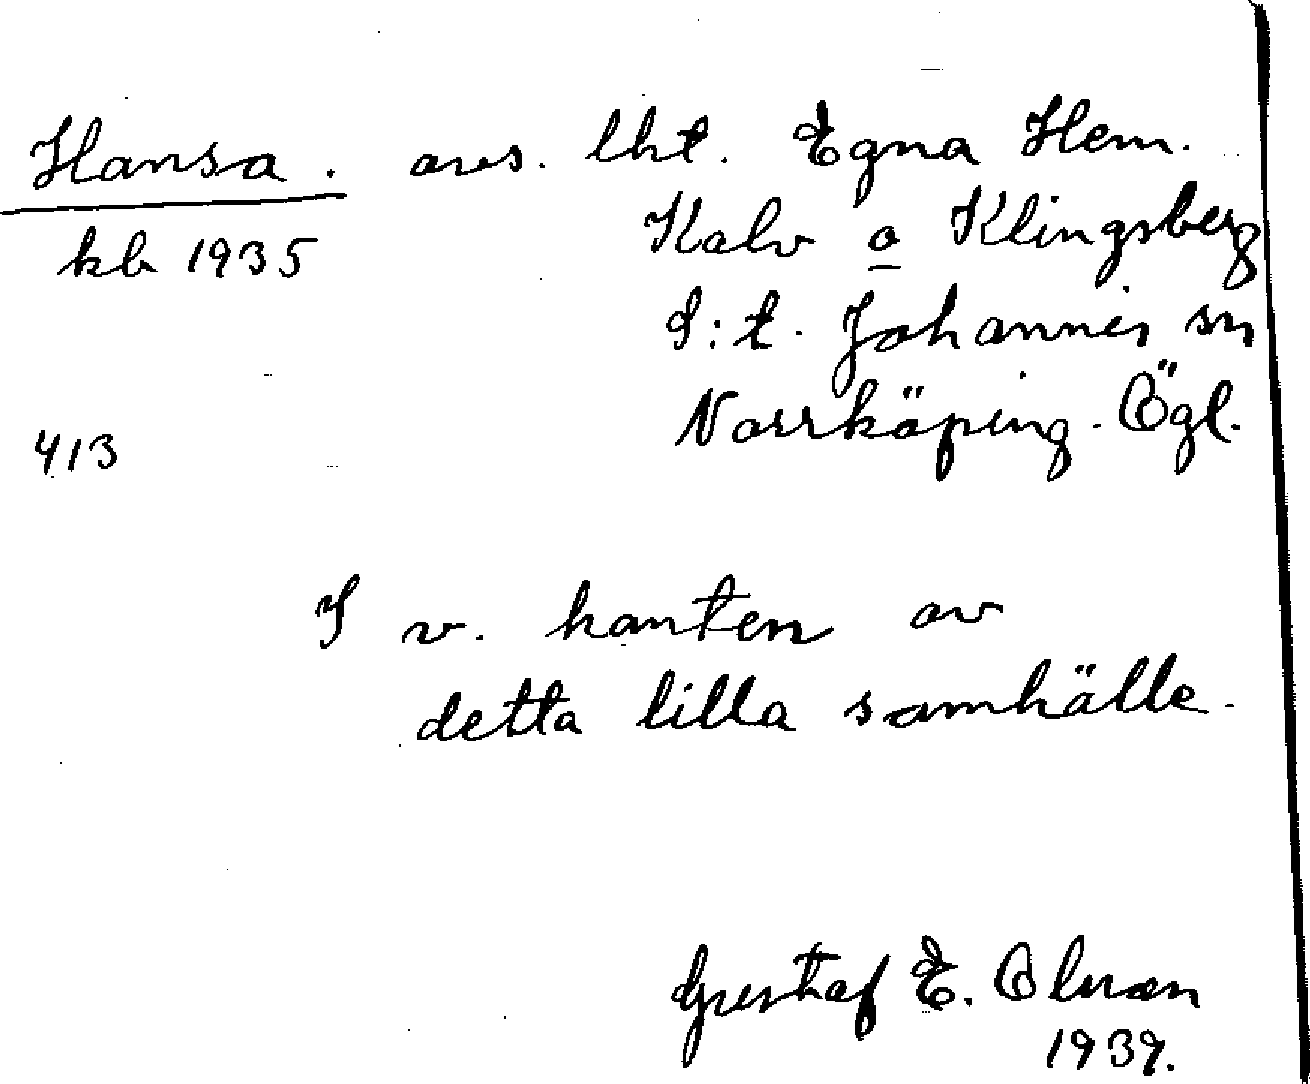 Hansa. avs. lht. Egna Hem.
kb 1935 Kalv o Klingsberg
S:t. Johannes sn
413 Norrköping. Ögl.
I v. kanten av
detta lilla samhälle.
Gustaf E. Olson
1939.